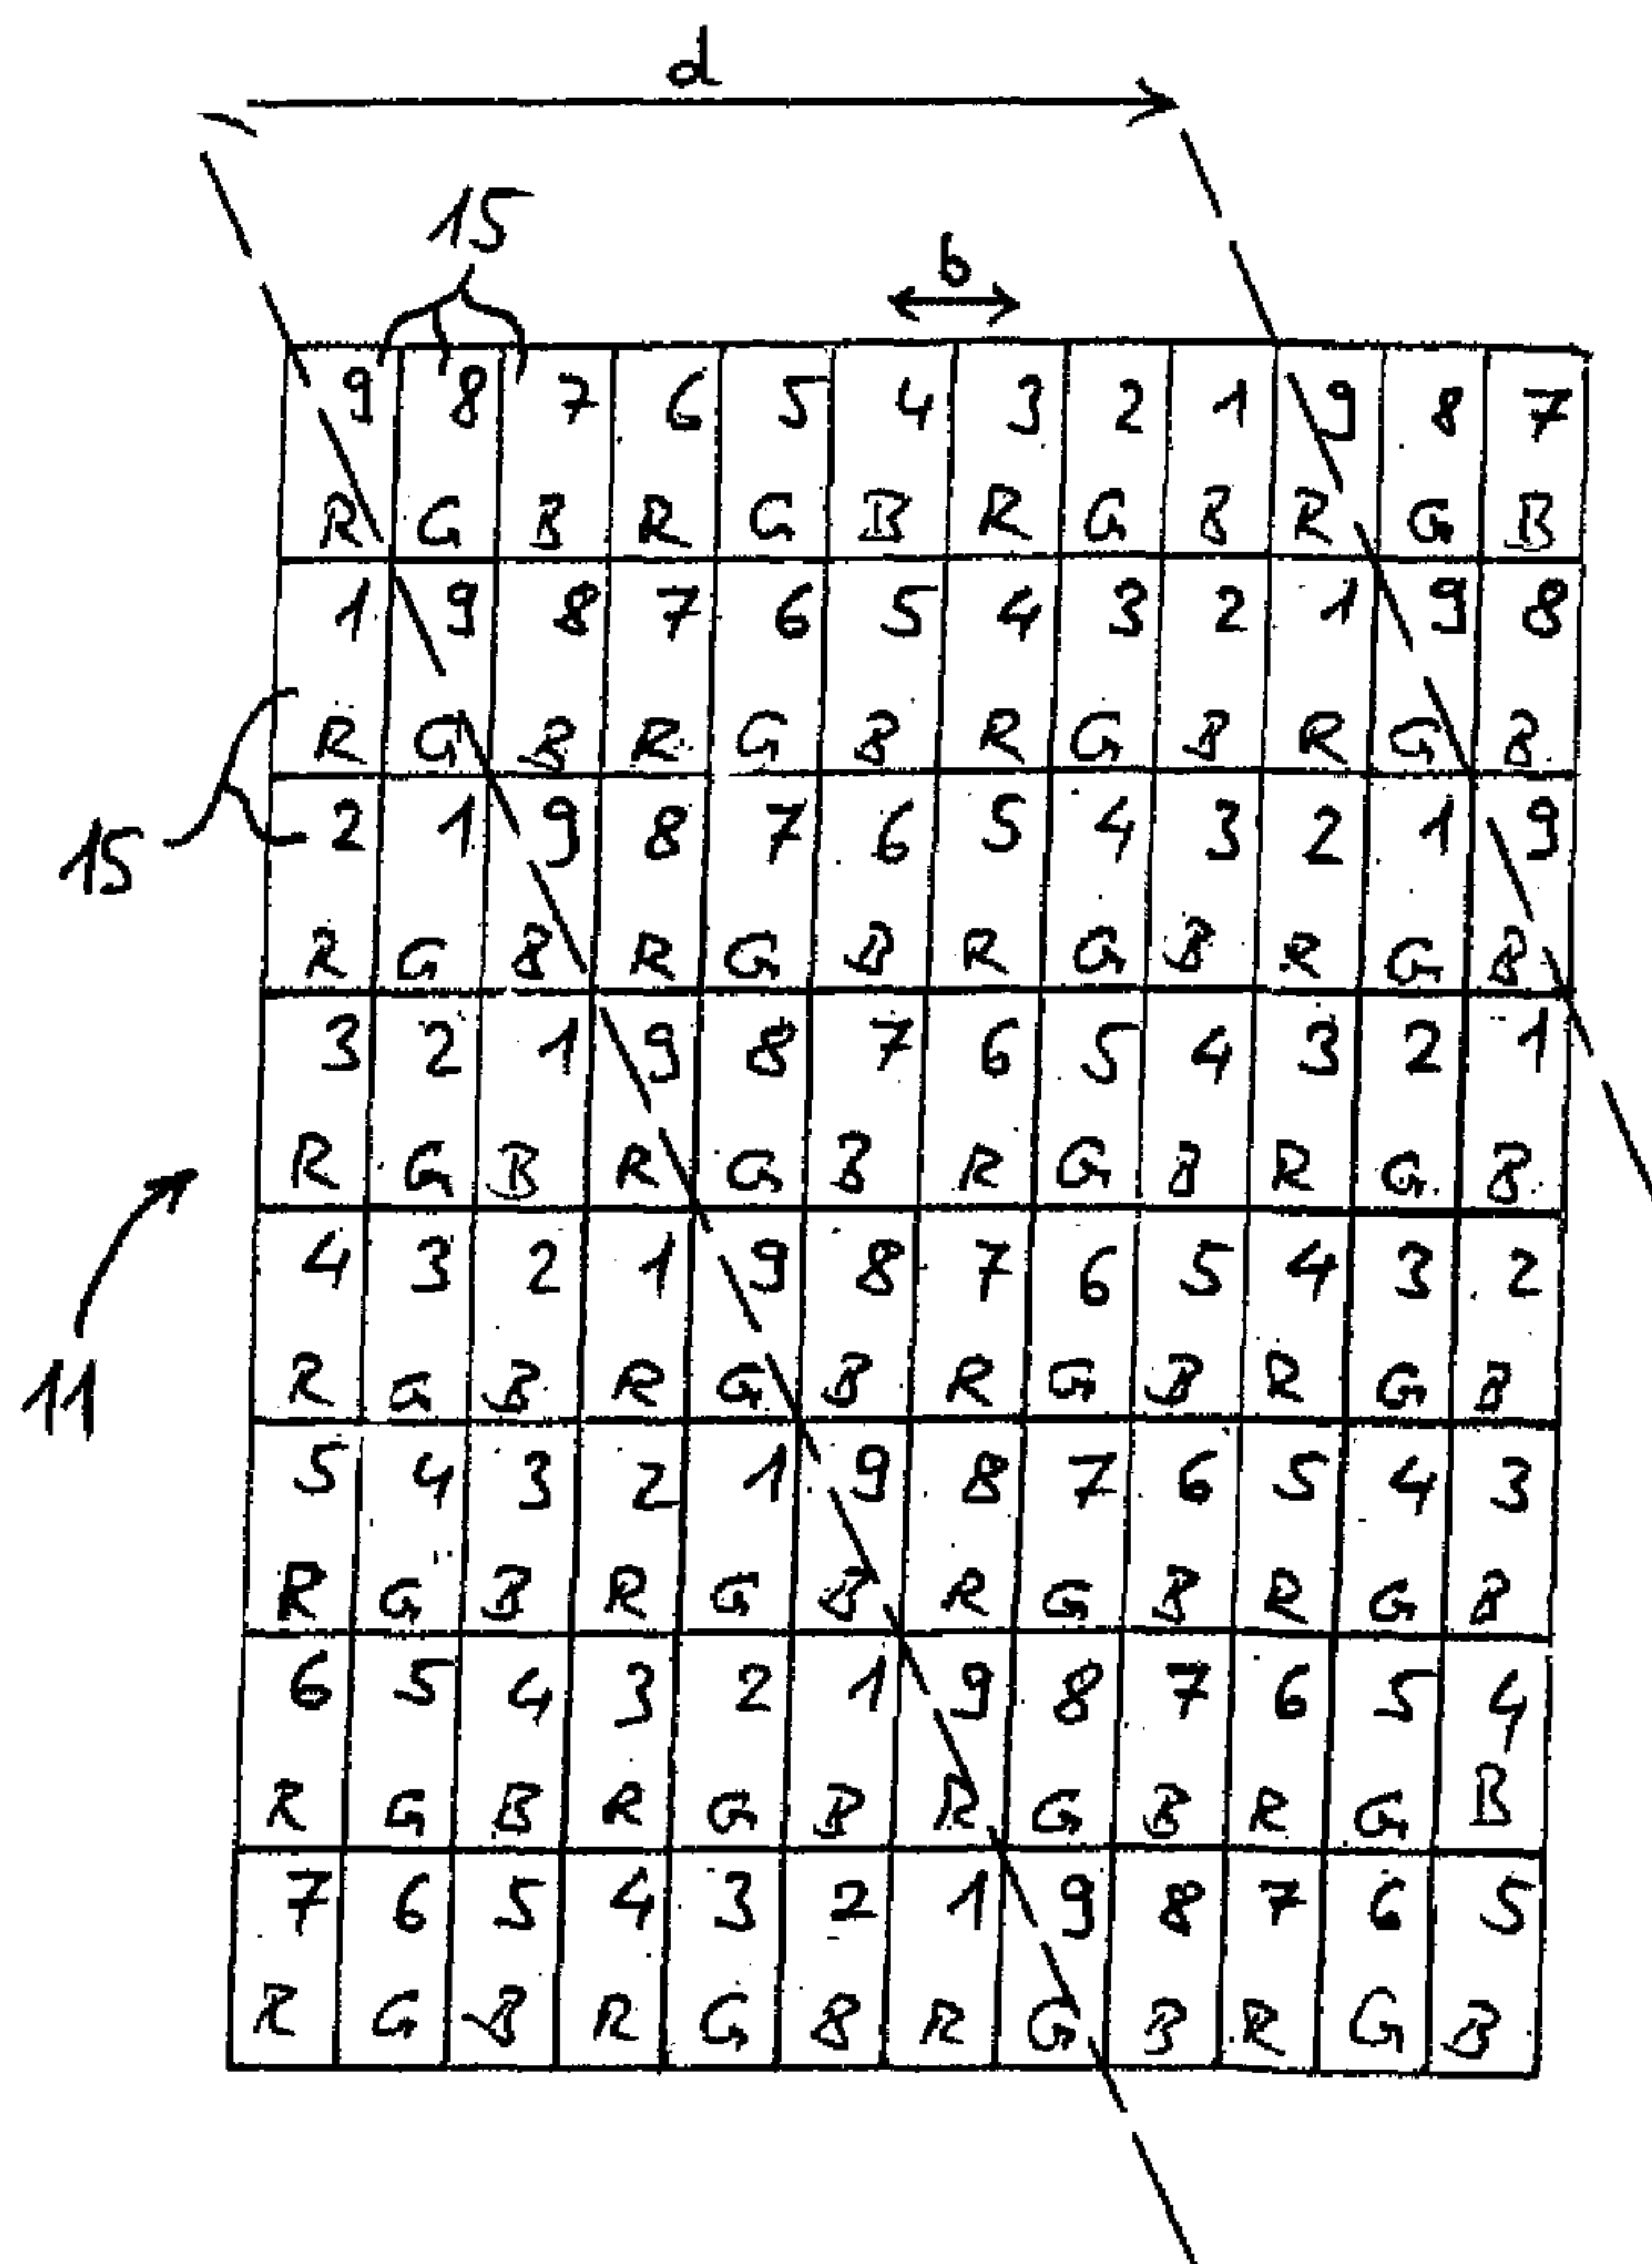 d
15
b
9 8 7 6 5 4 3 2 1 9 8 7
R G B R G B R G B R G B
1 9 8 7 6 5 4 3 2 1 9 8
R G B R G B R G B R G B
15
2 1 9 8 7 6 5 4 3 2 1 9
R G B R G B R G B R G B
3 2 1 9 8 7 6 5 4 3 2 1
R G B R G B R G B R G B
4 3 2 1 9 8 7 6 5 4 3 2
R G B R G B R G B R G B
11
5 4 3 2 1 9 8 7 6 5 4 3
R G B R G B R G B R G B
6 5 4 3 2 1 9 8 7 6 5 4
R G B R G B R G B R G B
7 6 5 4 3 2 1 9 8 7 6 5
R G B R G B R G B R G B